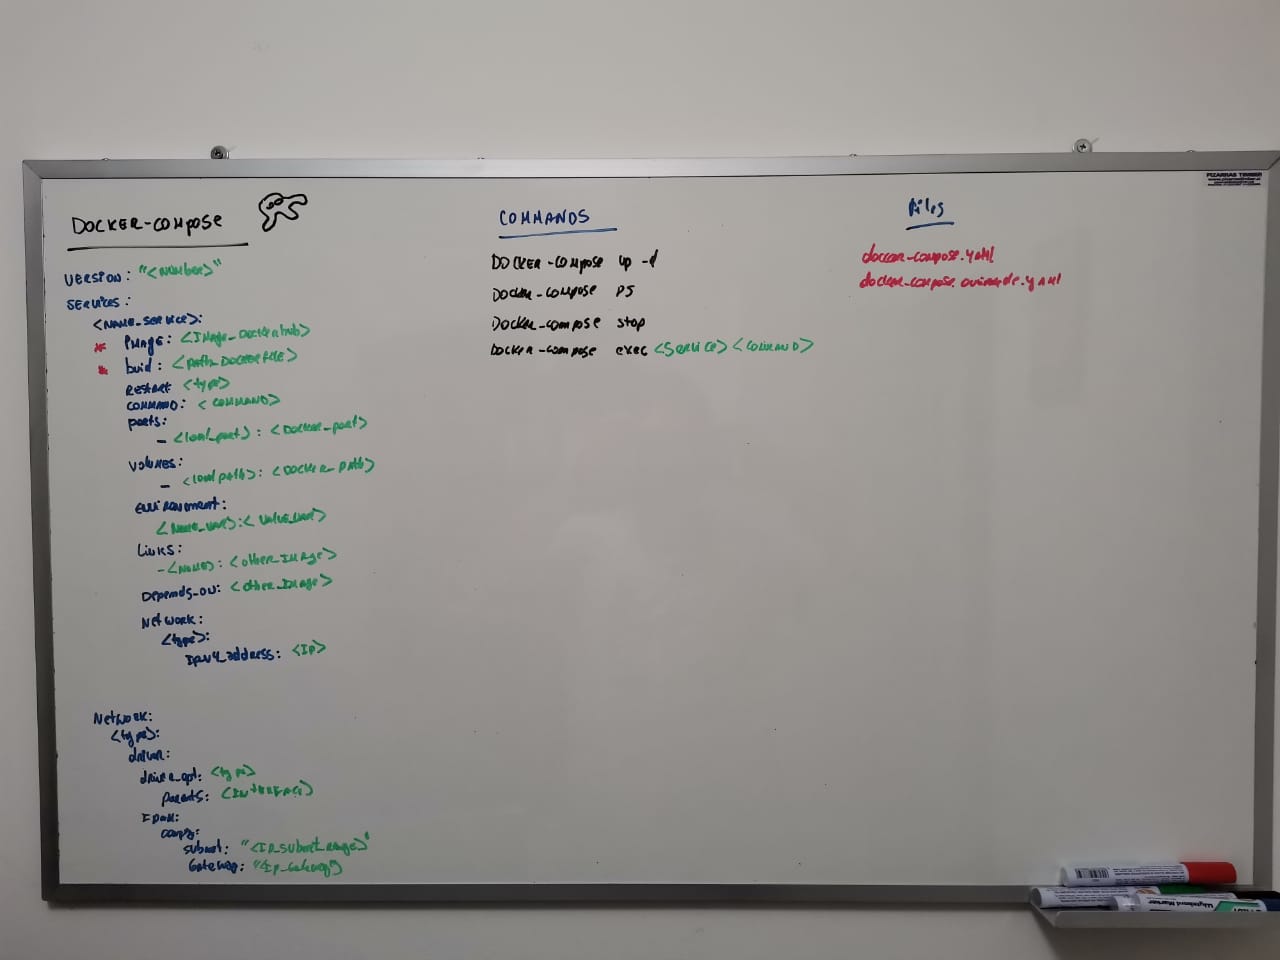 DOCKER-COMPOSE
VERSION: "<NUMBER>"
SERVICES:
<NAME_SERVICE>:
* IMAGE: <IMAGE_DOCKERHUB>
* build: <PATH_DOCKERFILE>
RESTART <type>
COMMAND: <COMMAND>
ports:
- <local_port>: <DOCKER_port>
VOLUMES:
- <local path>: <DOCKER_path>
ENVIRONMENT:
<NAME_VAR>:<VALUE_VAR>
LINKS:
-<NAME>: <other_IMAGE>
Depends_on: <other_IMAGE>
Network:
<type>:
IPV4_address: <IP>
Network:
<type>:
driver:
driver_opt: <type>
parents: <INTERFACE>
IPAM:
config:
subnet: "<IP_SUBNET_RANGE>"
Gateway: "<Ip_Gateway>"
COMMANDS
DOCKER-COMPOSE up -d
Docker-compose ps
Docker-compose stop
DOCKER-compose exec <Service> <COMMAND>
files
docker-compose.yaml
docker-compose.override.yaml
PIZARRAS
Whiteboard Marker